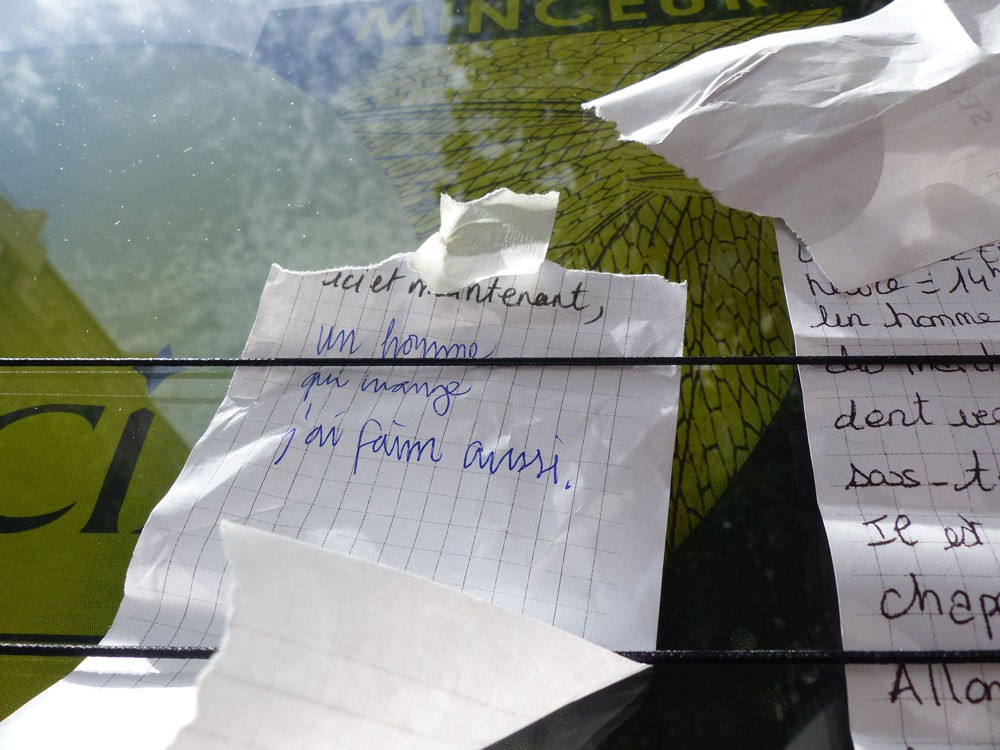 MINCEUR
ici et maintenant,
un homme
qui mange
j'ai faim aussi.
CI
heure = 14h
un homme
dont
sous-t
Il est
chap
Allon